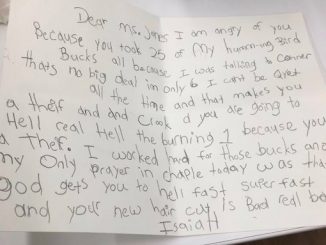 Dear Ms. Jones I am angry of you
Because you took 25 of My humming Bird
Bucks all because I was talking to Conner
thats no big deal im only 6 I cant be Qyet
all the time and that makes you
a theif and and Crook d you are going to
Hell real Hell the burning 1 because you
a Theif. I worked hard for those bucks and
my Only prayer in chaple today was tha
god gets you to hell fast super fast
and your new hair cut is Bad real bad
Isaiah